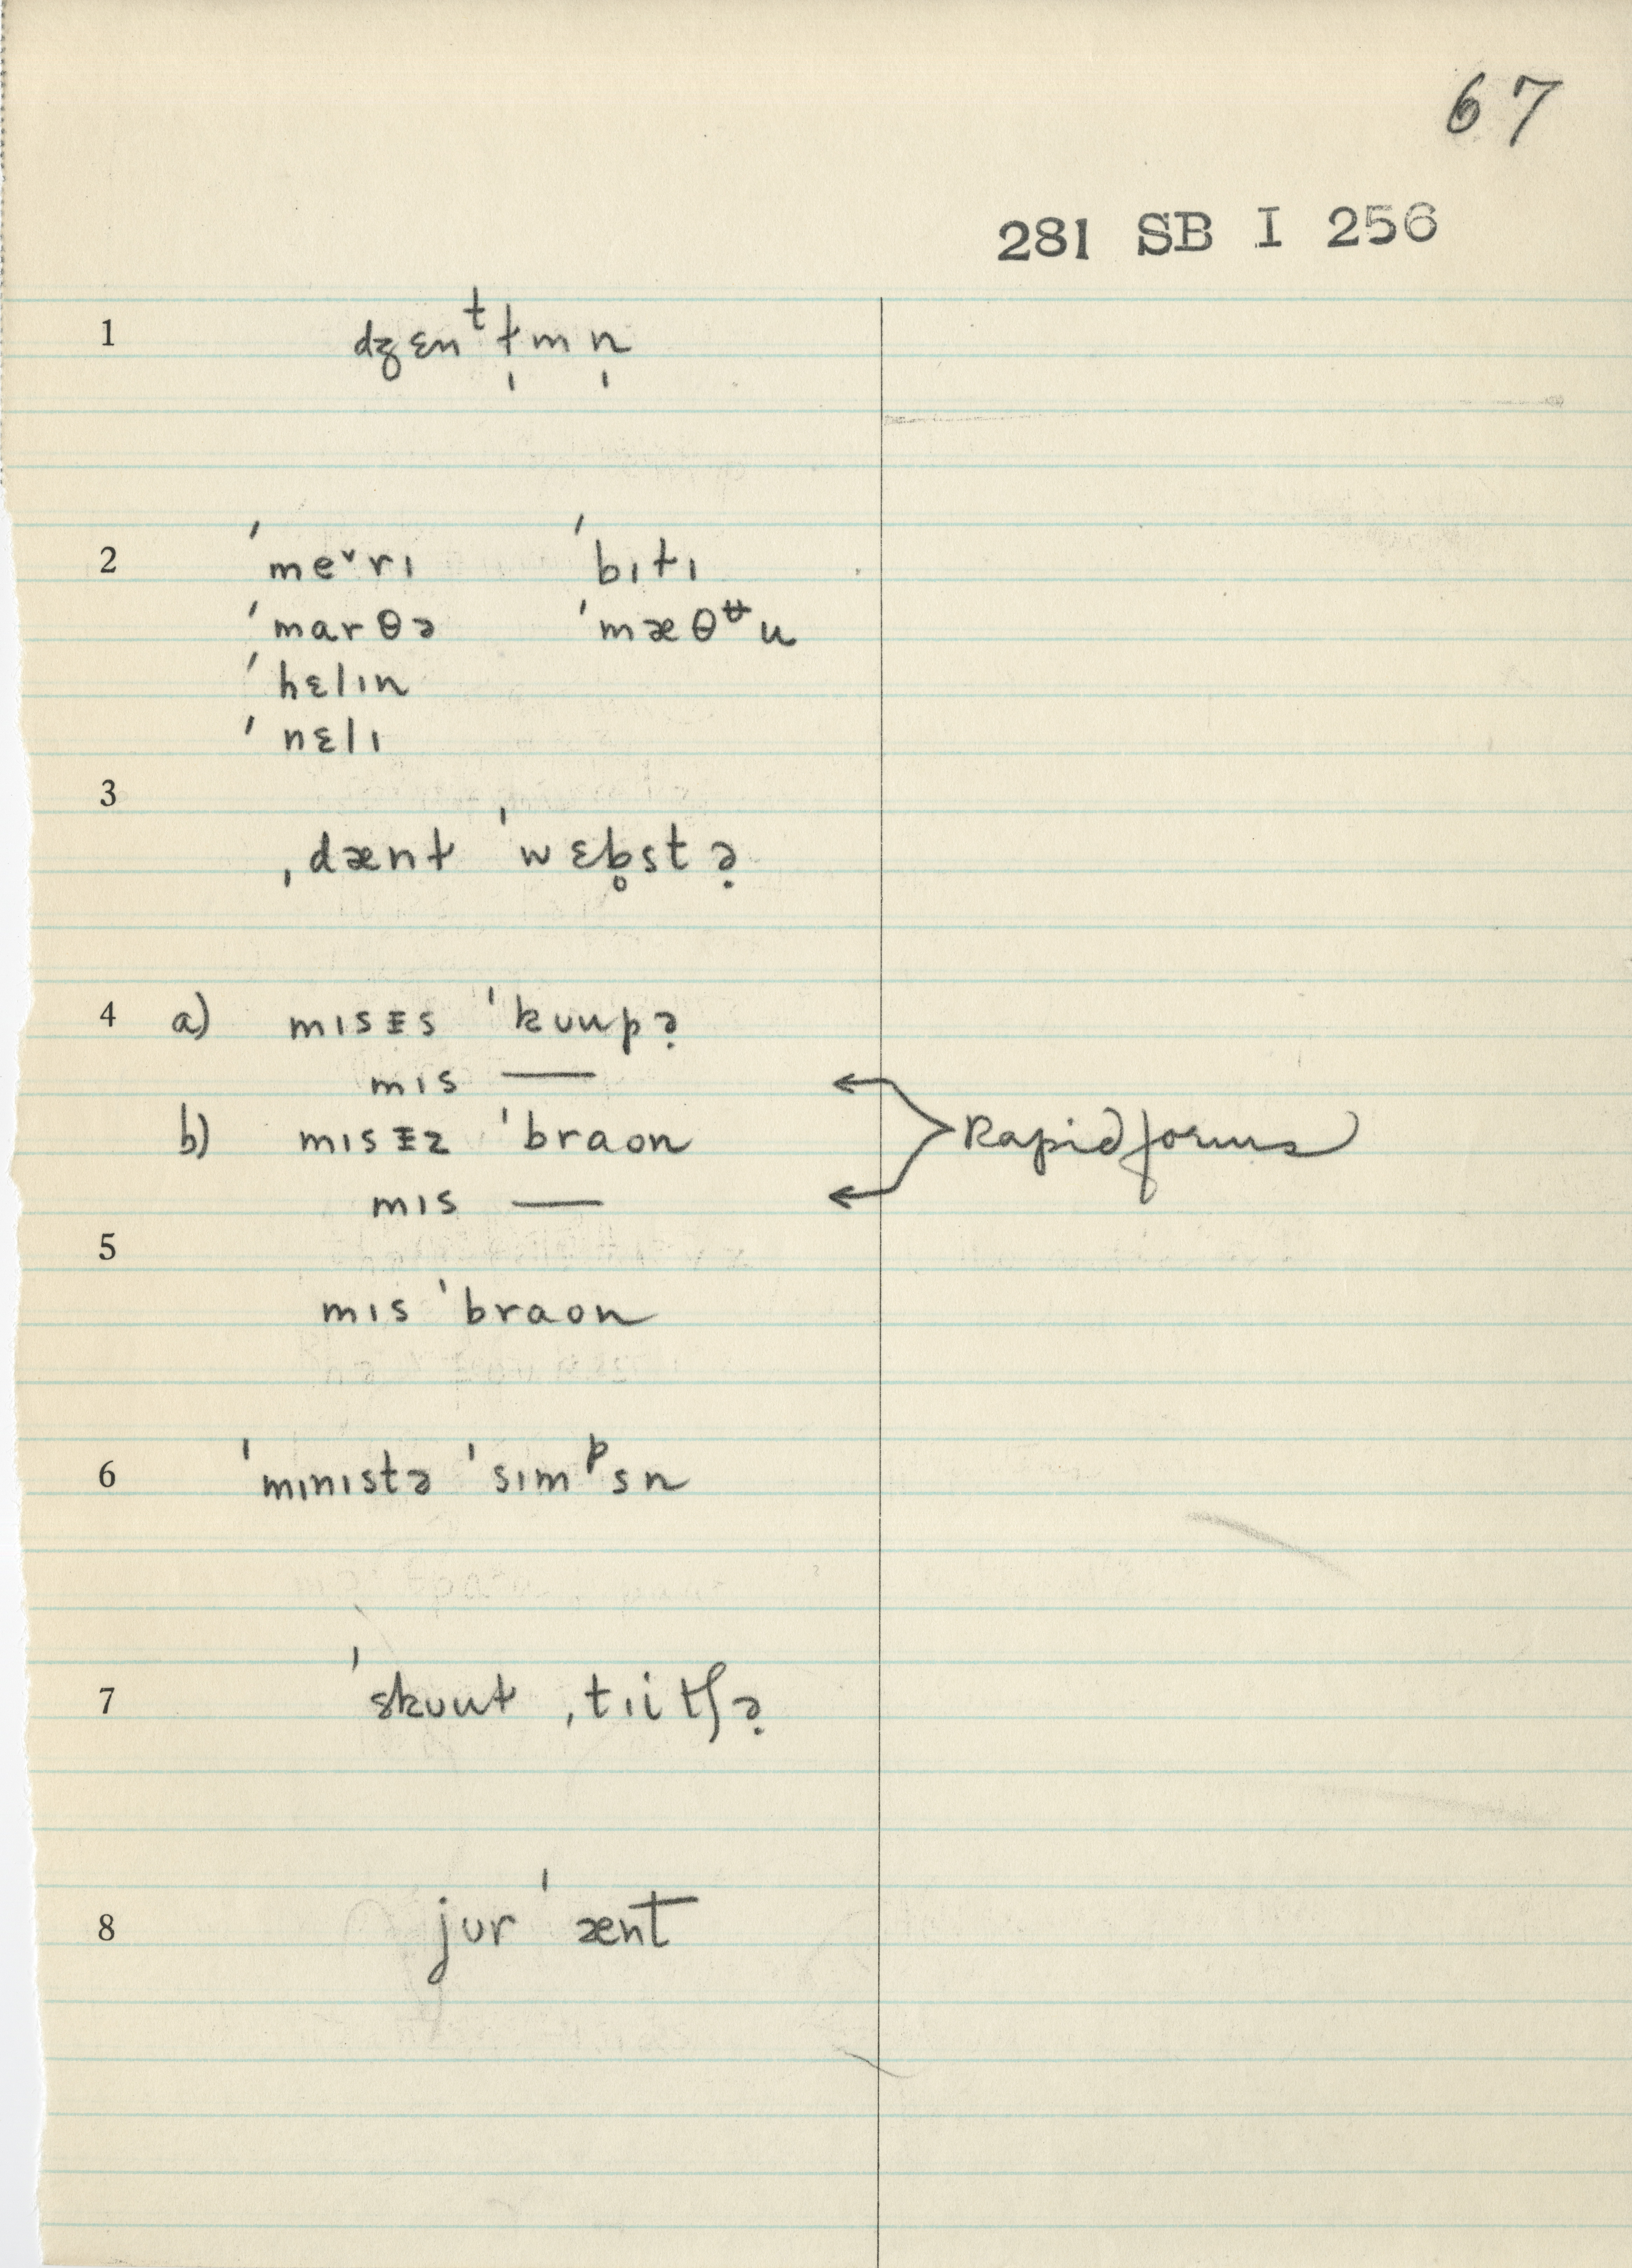 67
281 SB I 256
1 dʒɛnᵗɫ̩mn̩
2 ˈmeˇrɪ ˈbɪtɪ
ˈmarθə ˈmæθᶶu
ˈhɛlɪn
ˈnɛlɪ
3
ˌdænɫ ˈwɛb̥stə̣
4 a) mɪsᵻs ˈkuupə̣
mɪs —
b) mɪsᵻz ˈbraon Rapid forms
mɪs —
5
mɪs ˈbraon
6 ˈmɪnɪstə ˈsɪmᵖsn
7 ˈskuuɫ ˌtɪitʃə̣
8 jur ˈænt